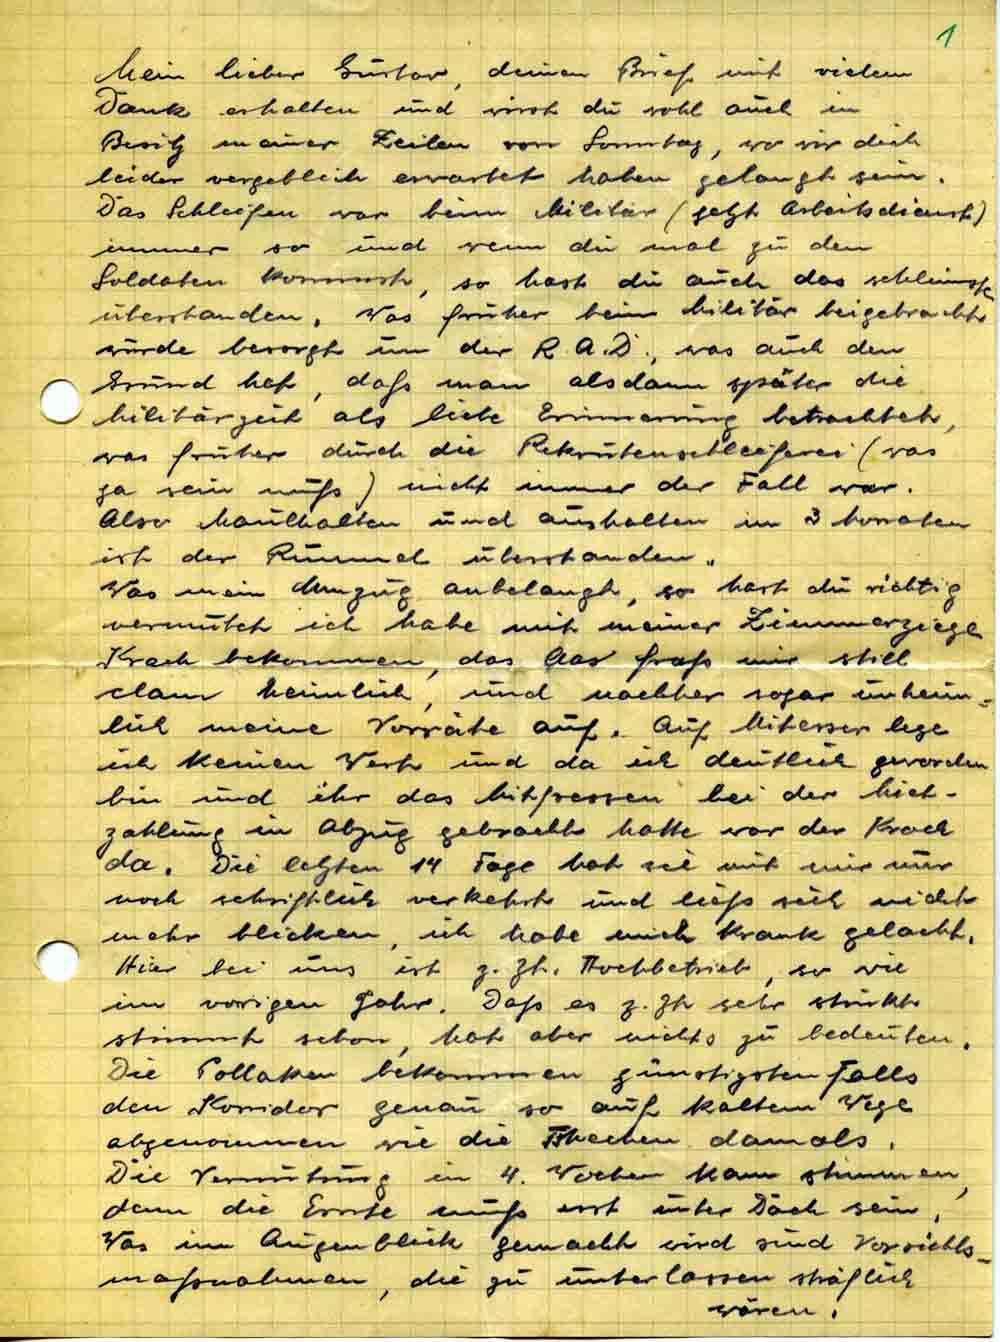 1
Mein lieber Gustav, deinen Brief mit vielem
Dank erhalten und wirst du wohl auch in
Besitz meiner Zeilen von Sonntag, wo wir dich
leider vergeblich erwartet haben gelangt sein.
Das Schleifen war beim Militär (jetzt Arbeitsdienst)
immer so und wenn du mal zu den
Soldaten kommst, so hast du auch das schlimmste
überstanden. Was früher beim Militär beigebracht
wurde besorgt nun der R.A.D., was auch den
Grund hat, daß man alsdann später die
Militärzeit als liebe Erinnerung betrachtet,
was früher durch die Rekrutenschleiferei (was
ja sein muß) nicht immer der Fall war.
Also Maulhalten und aushalten in 3 Monaten
ist der Rummel überstanden.
Was mein Umzug anbelangt, so hast du richtig
vermutet ich habe mit meiner Zimmerziege
Krach bekommen, das Aas fraß mir still
clam heimlich, und nachher sogar unheim-
lich meine Vorräte auf. Auf Mitesser lege
ich keinen Wert und da ich deutlich geworden
bin und ihr das Mitfressen bei der Miet-
zahlung in Abzug gebracht hatte war der Krach
da. Die letzten 14 Tage hat sie mit mir nur
noch schriftlich verkehrt und ließ sich nicht
mehr blicken, ich habe mich krank gelacht.
Hier bei uns ist z. Zt. Hochbetrieb, so wie
im vorigen Jahr. Daß es z. Zt sehr stinkt
stimmt schon, hat aber nichts zu bedeuten.
Die Pollaken bekommen günstigsten Falls
den Korridor genau so auf kaltem Wege
abgenommen wie die Tschechen damals.
Die Vermutung in 4. Wochen kann stimmen,
denn die Ernte muß erst unter Dach sein.
Was im Augenblick gemacht wird sind Vorsichts-
maßnahmen, die zu unterlassen sträflich
wären.